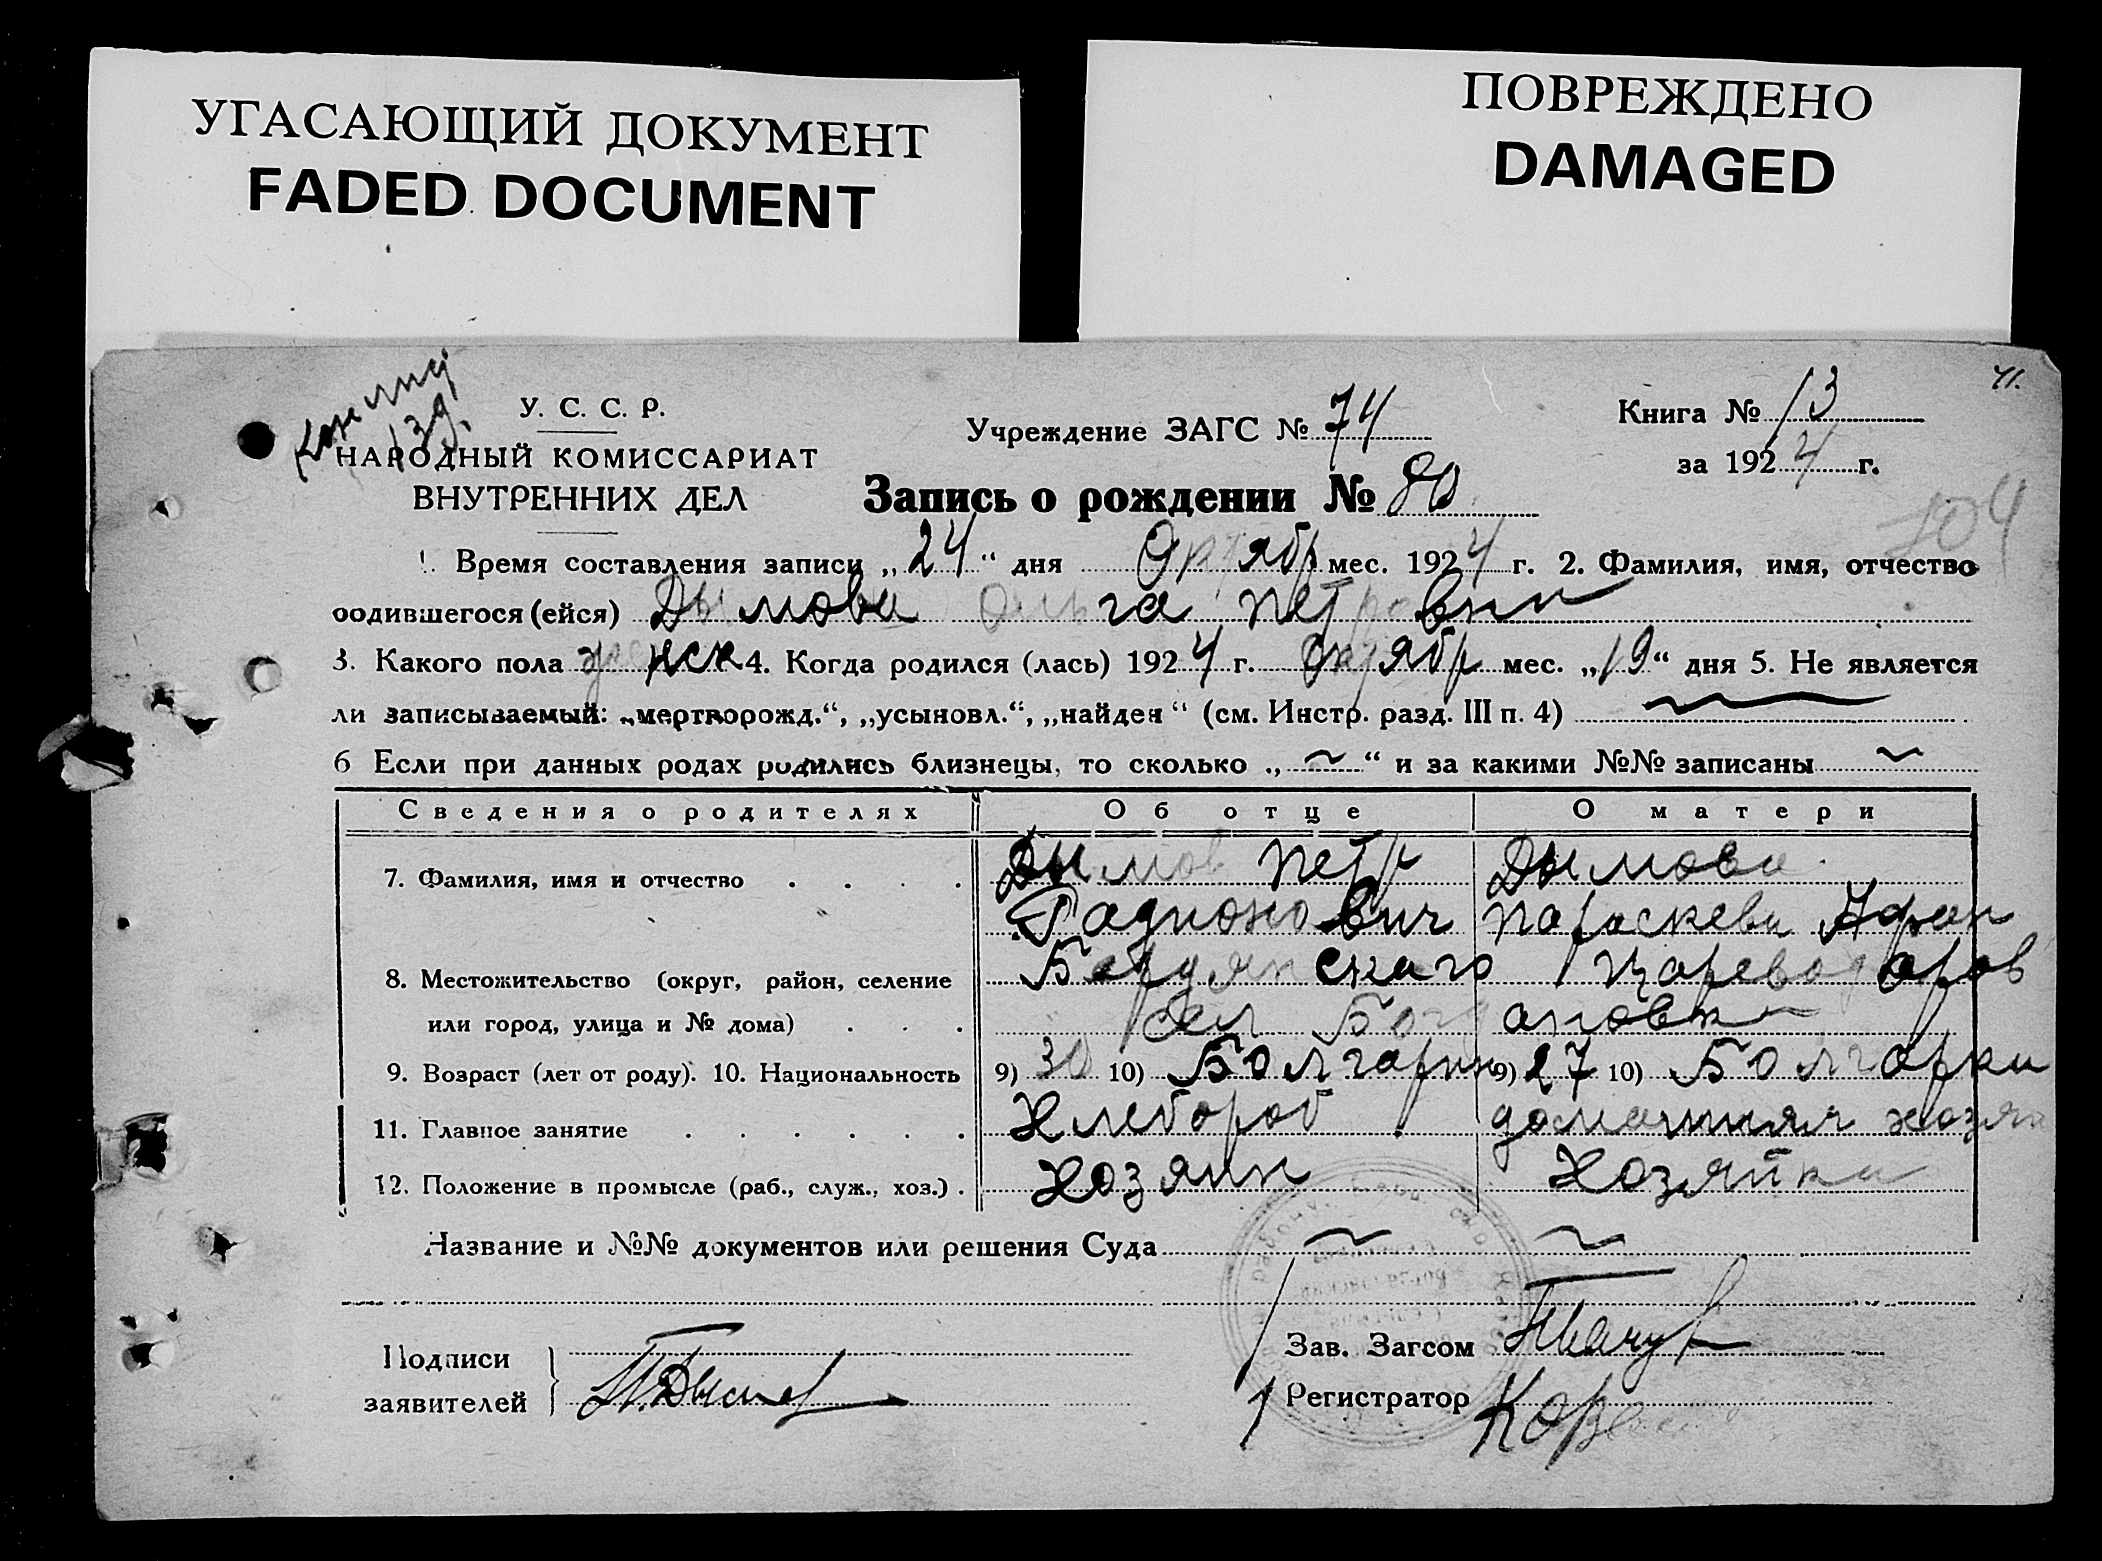 УГАСАЮЩИЙ ДОКУМЕНТ
FADED DOCUMENT
ПОВРЕЖДЕНО
DAMAGED
41.
У. С. С. Р.
НАРОДНЫЙ КОМИССАРИАТ
ВНУТРЕННИХ ДЕЛ
Учреждение ЗАГС № 74
Книга № 13
за 1924 г.
Запись о рождении № 80
104
1. Время составления записи „24“ дня Октябр мес. 1924 г. 2. Фамилия, имя, отчество
родившегося (ейся) Дымова Ольга Петровна
3. Какого пола женск 4. Когда родился (лась) 1924 г. Октябр мес. „19“ дня 5. Не является
ли записываемый: „мертворожд.“, „усыновл.“, „найден“ (см. Инстр. разд. III п. 4)
6 Если при данных родах родились близнецы, то сколько „~“ и за какими №№ записаны ~
Сведения о родителях Об отце О матери
7. Фамилия, имя и отчество . . . . Дымов Петр Дымова
Радионович Параскева Афан
8. Местожительство (округ, район, селение Бердянскаго Цареводаров
или город, улица и № дома) . . . сел Богдановка
9. Возраст (лет от роду). 10. Национальность 9) 30 10) Болгарин 9) 27 10) Болгарка
11. Главное занятие . . . . . . Хлебороб домашняя хозяй
12. Положение в промысле (раб., служ., хоз.) . Хозяин Хозяйка
Название и №№ документов или решения Суда ~ ~
Подписи
заявителей П. Дымов
Зав. Загсом
Регистратор